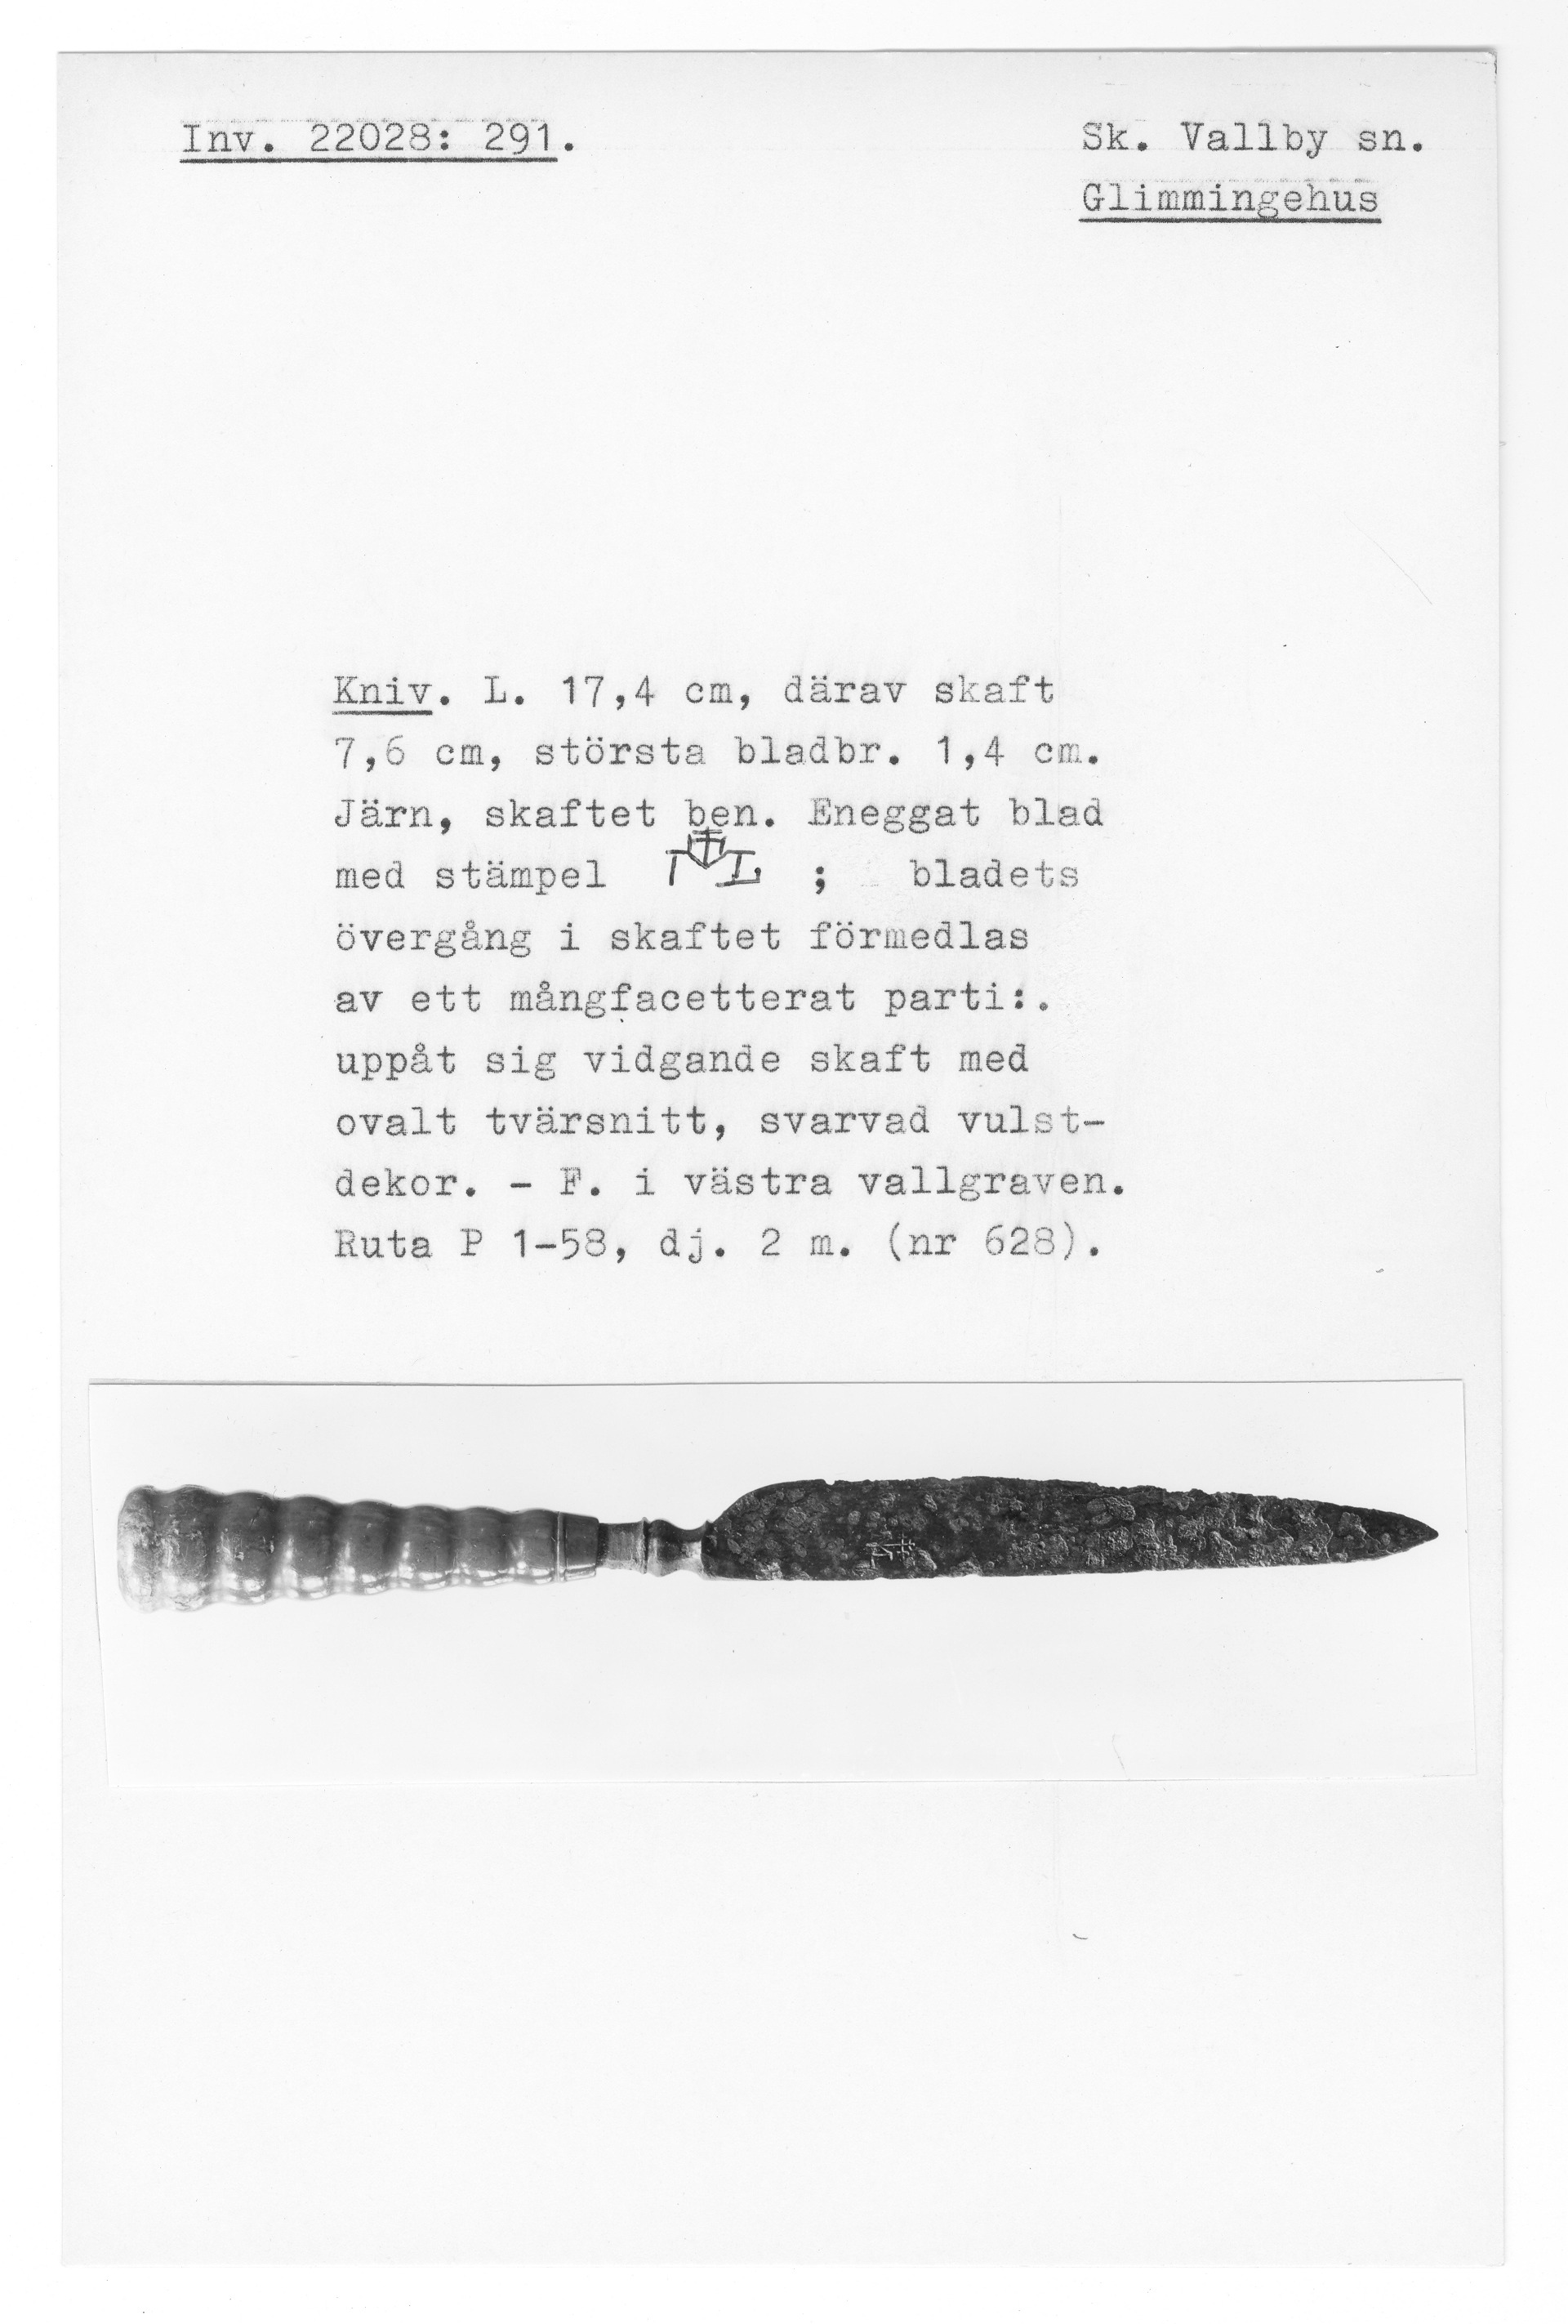 Inv. 22028: 291.
Sk. Vallby sn.
Glimmingehus
Kniv. L. 17,4 cm, därav skaft
7,6 cm, största bladbr. 1,4 cm.
Järn, skaftet ben. Eneggat blad
med stämpel ; bladets
övergång i skaftet förmedlas
av ett mångfacetterat parti:.
uppåt sig vidgande skaft med
ovalt tvärsnitt, svarvad vulst-
dekor. - F. i västra vallgraven.
Ruta P 1-58, dj. 2 m. (nr 628).